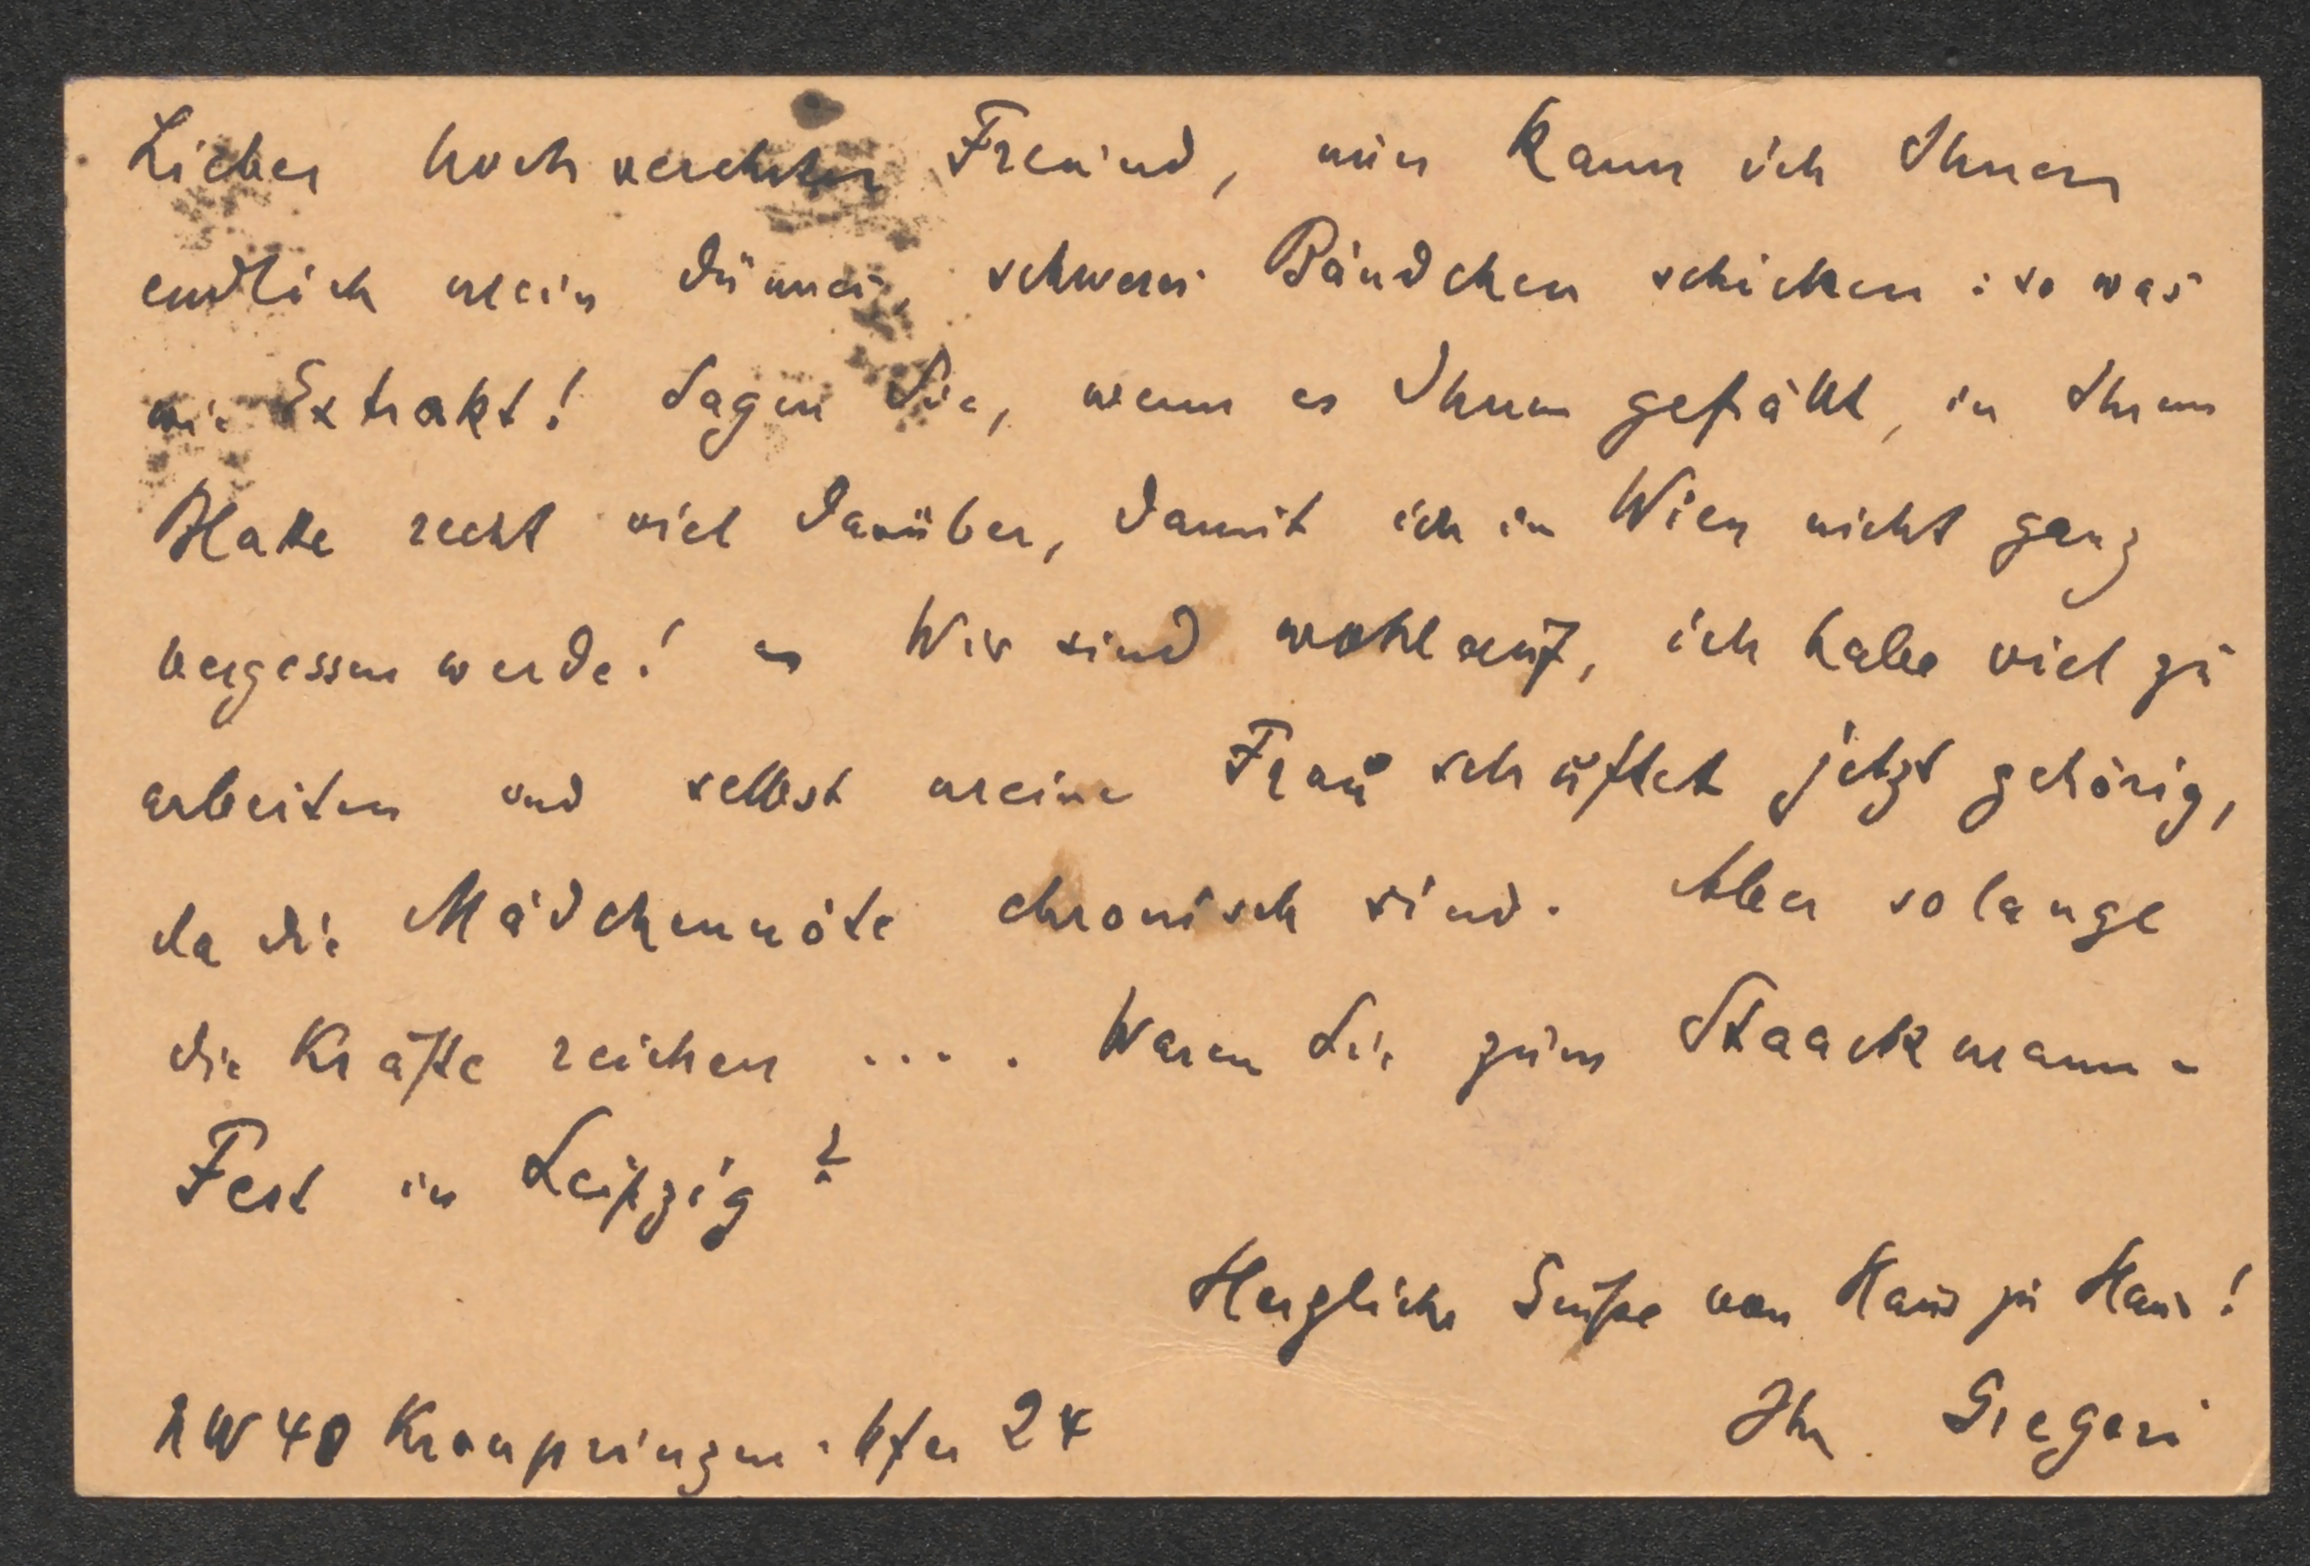 Lieber hochverehrter Freund, nun kann ich Ihnen
endlich mein dünnes, schweres Bändchen schicken: so was
wie Extrakt! Sagen Sie, wenn es Ihnen gefällt, in Ihrem
Blatte recht viel darüber, damit ich in Wien nicht ganz
vergessen werde! – Wir sind wohlauf, ich habe viel zu
arbeiten und selbst meine Frau schuftet jetzt gehörig,
da die Mädchennöte chronisch sind. Aber solange
die Kräfte reichen .... Waren Sie zum Staackmann-
Fest in Leipzig?
Herzliche Grüße von Haus zu Haus!
NW 40 Kronprinzen-Ufer 24
Ihr Gregori